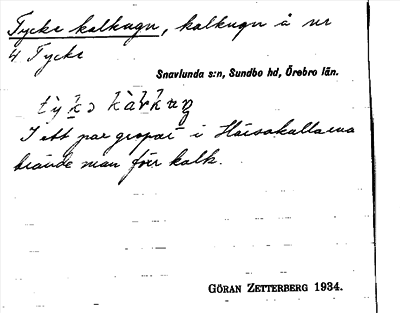 Tycke kalkugn, kalkugn å nr
4 Tycke
Snavlunda s:n, Sundbo hd, Örebro län.
I ett par gropar i
brände man förr kalk.
GÖRAN ZETTERBERG 1934.